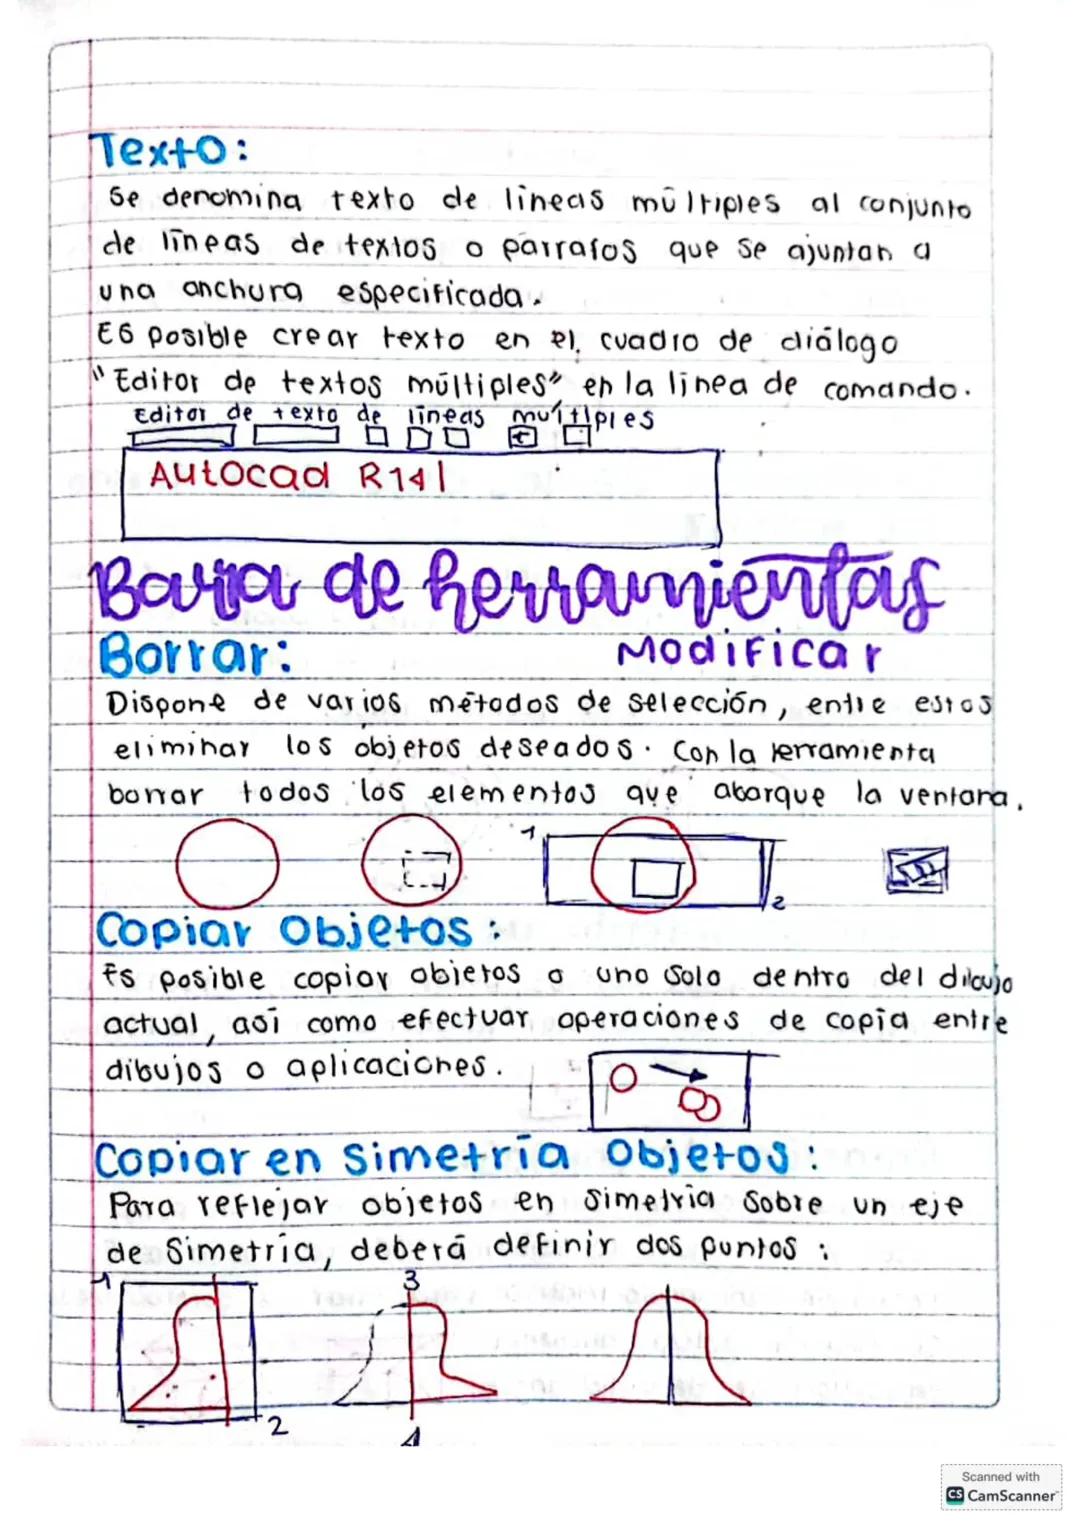 Texto:
Se denomina texto de lineas múltiples al conjunto
de lineas de textos o párrafos que se ajuntan a
una anchura especificada.
Es posible crear texto en el cuadro de diálogo
"Editor de textos múltiples" en la linea de comando.
Editor de texto de lineas multiples
Autocad R14|
Barra de herramientas
Borrar: Modificar
Dispone de varios métodos de selección, entre estos
eliminar los objetos deseados. Con la erramienta
borrar todos los elementos que abarque la ventana.
1
2
Copiar Objetos:
Es posible copiar objetos o uno solo dentro del dibujo
actual, así como efectuar operaciones de copia entre
dibujos o aplicaciones.
Copiar en simetría Objetos:
Para reflejar objetos en simetría sobre un eje
de Simetría, deberá definir dos puntos:
1 3
2 4
Scanned with
CS CamScanner